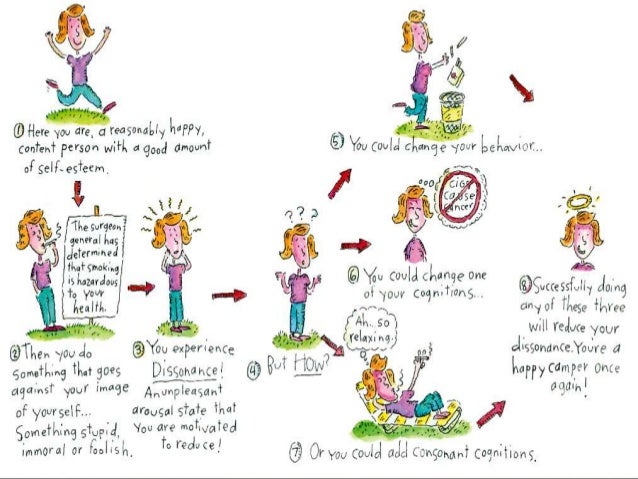 ① Here you are, a reasonably happy,
content person with a good amount
of self-esteem.
The surgeon
general has
determined
that smoking
is hazardous
to your
health.
② Then you do
something that goes
against your image
of yourself...
Something stupid,
immoral or foolish.
③ You experience
Dissonance!
An unpleasant
arousal state that
you are motivated
to reduce!
? ? ?
④ But How?
⑤ You could change your behavior...
CIGS
cause
cancer
⑥ You could change one
of your cognitions...
Ah.. so
relaxing.
⑦ Or you could add consonant cognitions.
⑧ Successfully doing
any of these three
will reduce your
dissonance. Youre a
happy camper once
again!